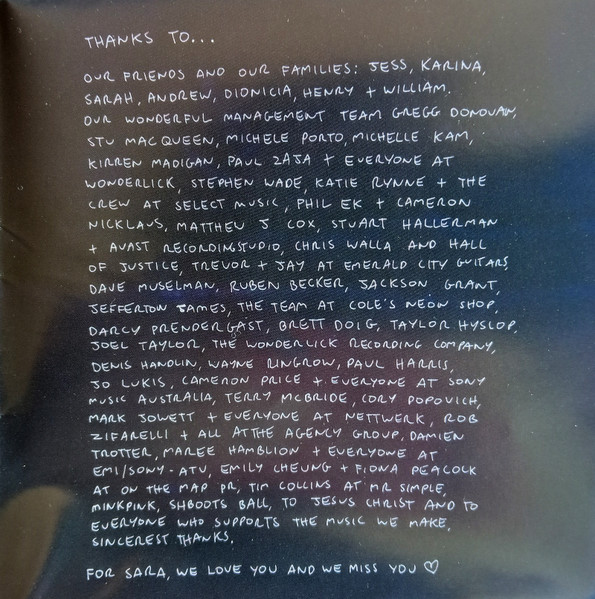 THANKS TO...
OUR FRIENDS AND OUR FAMILIES: JESS, KARINA,
SARAH, ANDREW, DIONICIA, HENRY + WILLIAM.
OUR WONDERFUL MANAGEMENT TEAM GREGG DONOVAN,
STU MACQUEEN, MICHELE PORTO, MICHELLE KAM,
KIRREN MADIGAN, PAUL ZAJA + EVERYONE AT
WONDERLICK, STEPHEN WADE, KATIE RYNNE + THE
CREW AT SELECT MUSIC, PHIL EK + CAMERON
NICKLAUS, MATTHEW J COX, STUART HALLERMAN
+ AVAST RECORDINGSTUDIO, CHRIS WALLA AND HALL
OF JUSTICE, TREVOR + JAY AT EMERALD CITY GUITARS,
DAVE MUSELMAN, RUBEN BECKER, JACKSON GRANT,
JEFFERTON JAMES, THE TEAM AT COLE'S NEON SHOP,
DARCY PRENDERGAST, BRETT DOIG, TAYLOR HYSLOP,
JOEL TAYLOR, THE WONDERLICK RECORDING COMPANY,
DENIS HANDLIN, WAYNE RINGROW, PAUL HARRIS,
JO LUKIS, CAMERON PRICE + EVERYONE AT SONY
MUSIC AUSTRALIA, TERRY MCBRIDE, CORY POPOVICH,
MARK JOWETT + EVERYONE AT NETTWERK, ROB
ZIFARELLI + ALL AT THE AGENCY GROUP, DAMIEN
TROTTER, MAREE HAMBLION + EVERYONE AT
EMI/SONY-ATV, EMILY CHEUNG + FIONA PEACOCK
AT ON THE MAP PR, TIM COLLINS AT MR SIMPLE,
MINKPINK, SHBOOTS BALL, TO JESUS CHRIST AND TO
EVERYONE WHO SUPPORTS THE MUSIC WE MAKE.
SINCEREST THANKS.
FOR SARA, WE LOVE YOU AND WE MISS YOU ♡